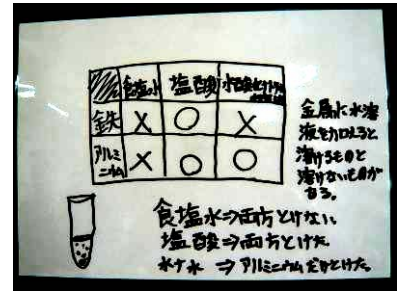 食塩水 塩酸 水酸化ナトリウム水溶液
鉄 X O X
アルミニウム X O O
金属に水溶
液を加えると
溶けるものと
溶けないものが
ある。
食塩水⇒両方とけない
塩酸⇒両方とけた
水ナ水 ⇒ アルミニウムだけとけた。